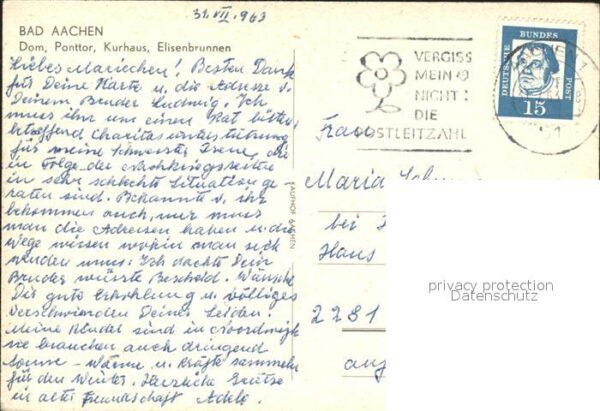 31.VII.1963
BAD AACHEN
Dom, Ponttor, Kurhaus, Elisenbrunnen
Liebes Mariechen! Besten Dank
für Deine Karte u. die Adresse v.
Deinem Bruder Ludwig. Ich
muss ihn um einen Rat bitten
betreffend Charitasunterstützung
für meine Schwester Irene, die
in Folge der Nachkriegszeiten
in sehr schlechte Situation ge
raten sind. Bekannte v. ihr
bekommen auch, nur muss
man die Adressen haben u. die
Wege wissen wohin man sich
wenden muss: Ich dachte Dein
Bruder wüsste Bescheid. Wünsche
Dir gute Erholung u. völliges
Verschwinden Deiner Leiden.
Meine Kinder sind in Noordwijk
sie brauchen auch dringend
Sonne - Wärme u. Kräfte sammeln
für den Winter. Herzliche Grüsse
in alter Freundschaft Adele.
KAUFHOF AACHEN
VERGISS
MEIN
NICHT:
DIE
POSTLEITZAHL
DEUTSCHE BUNDESPOST
15
Frau
Maria
bei
Haus
2281
auf
privacy protection
Datenschutz